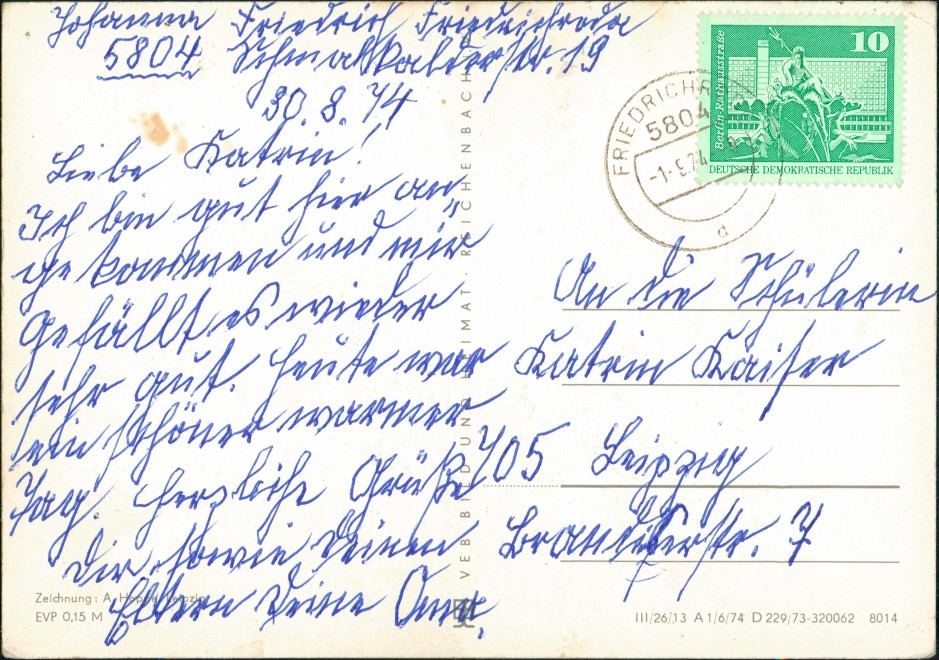 Johanna Friedrich Friedrichroda
5804 Schmalkalderstr. 19
30.8.74
Liebe Katrin!
Ich bin gut hier an„
gekommen und mir
gefällt es wieder
sehr gut. Heute war
ein schöner warmer
Tag. Herzliche Grüße
Dir sowie Deinen
Eltern Deine Oma.
Zeichnung: A. Hoppe, Leipzig
EVP 0,15 M
VEB BILD UND HEIMAT REICHENBACH
10
Berlin-Rathausstraße
DEUTSCHE DEMOKRATISCHE REPUBLIK
5804
-1.-9.74
d
An die Schülerin
Katrin Kaiser
705 Leipzig
7
III/26/13 A 1/6/74 D 229/73-320062 8014